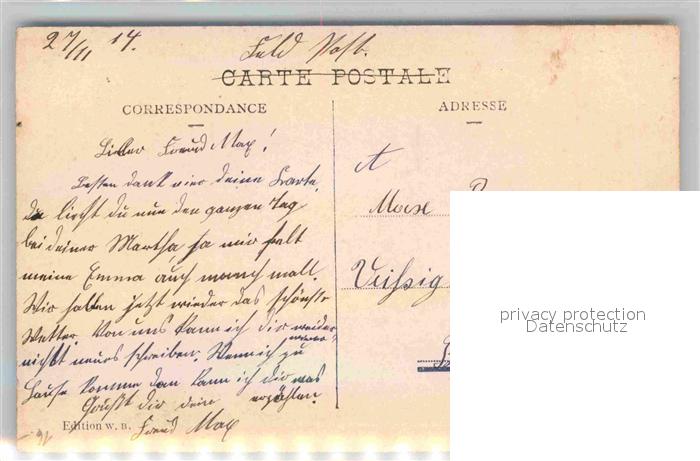 27/11 14.
Feld Post.
CARTE POSTALE
CORRESPONDANCE
ADRESSE
Lieber Freund Max!
Besten dank vier deine Karte.
Du lichst du nun den ganzen Tag
bei deiner Martha, ja mir falt
meine Emma auch manch mall
Wir halten jetzt wieder das schönste
Wetter. Von uns kann ich dir weider
nichst neues schreiben. Wen ich zu
Hause komme dan kann ich dir was
erzählen.
Grüßt dir dein
Freund Max
Edition W. B.
A
Max
privacy protection
Datenschutz